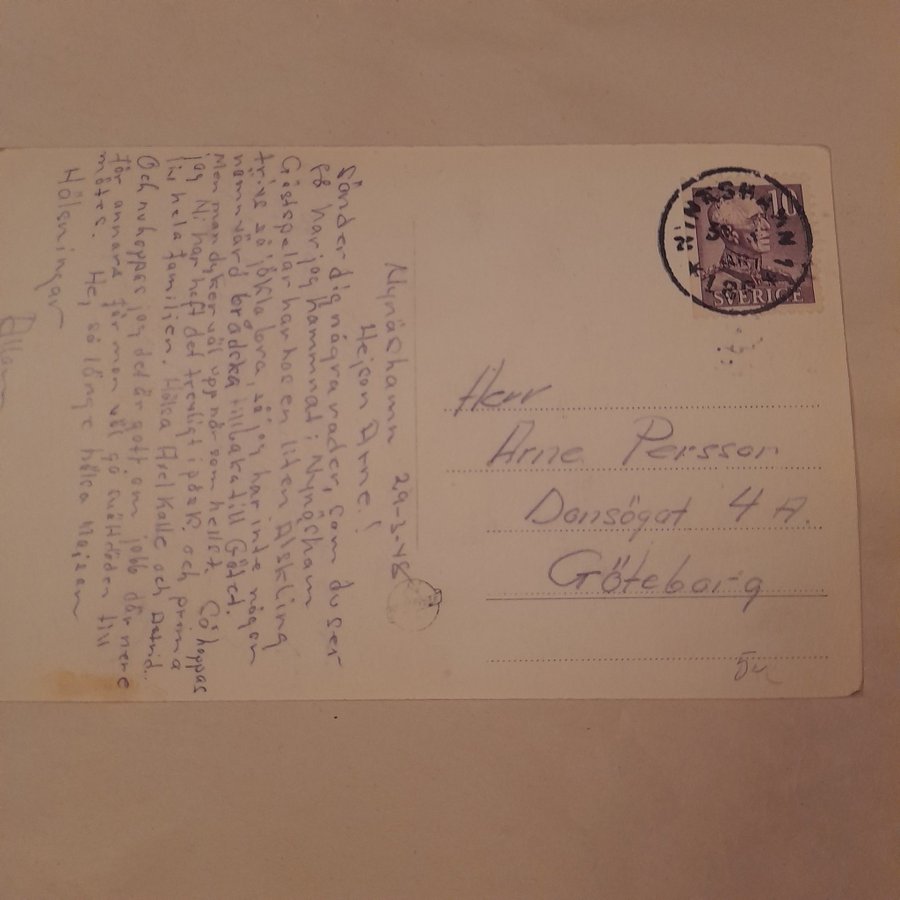 Nynäshamn 29-3-48
Hejsan Arne!
Sänder dig några rader, som du ser
så har jag hammnat i Nynäsham
Gästspelar har hos en liten Älskling
trivs så jökla bra, så jag har inte någon
nemnvärd brådska tillbaka till Göteb.
Men man dyker väl upp när som helst. Så hoppas
jag Ni har haft det trevligt i påsk. och prima
liv hela familjen. Hälsa Axel Kalle och Astrid.
Och nu hoppas jag det är gott om jobb där nere
för annars får man väl gå
mötes. Hej så länge hälsa Majken
Hälsningar
Allan
NYNÄSHAMN 1
30
48
10
SVERIGE
Herr
Arne Persson
Dansögat 4 A.
Göteborg